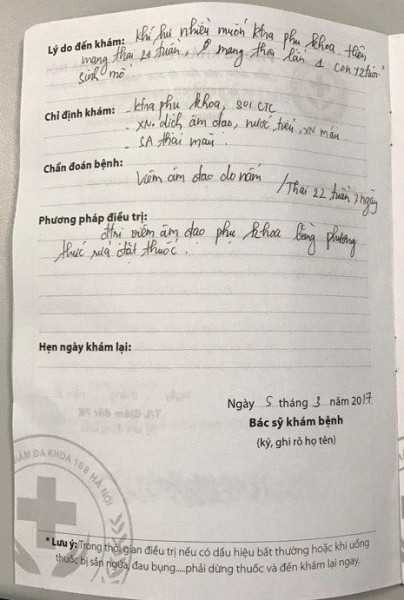 Lý do đến khám: Khí hư nhiều muốn ktra phụ khoa. Hiện
mang thai 20 tuần, mang thai lần 1 con 12 tuổi
sinh mổ
Chỉ định khám: - ktra phụ khoa, soi CTC
- XN. dịch âm đạo, nước tiểu, XN máu
- SA thai màu.
Chẩn đoán bệnh:
Viêm âm đạo do nấm /Thai 22 tuần 2 ngày
Phương pháp điều trị:
Đtrị viêm âm đạo phụ khoa bằng phương
thức rửa đặt thuốc.
Hẹn ngày khám lại:
Ngày 5 tháng 3 năm 2017
Bác sỹ khám bệnh
(ký, ghi rõ họ tên)
KHÁM ĐA KHOA 168 HÀ NỘI
* Lưu ý: Trong thời gian điều trị nếu có dấu hiệu bất thường hoặc khi uống
thuốc bị sẩn ngứa, đau bụng....phải dừng thuốc và đến khám lại ngay.